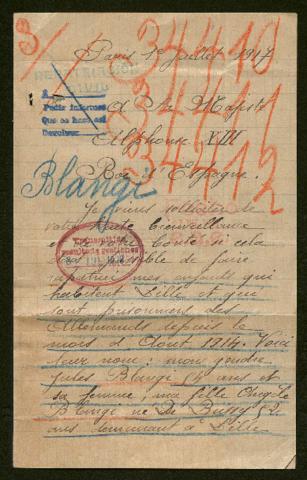 Paris 1er Juillet 1917
34410
34411
34412
A Sa Majesté
Alphonse XIII
Roi d'Espagne.
A
Pedir Informes
Que se hace así
Devolver
Blangi
Je viens solliciter de
votre haute bienveillance
et bonté si cela
possible de faire
rapatrier mes enfants qui
habitent Lille et qui
sont prisonniers des
Allemands depuis le
mois d'Aout 1914. Voici
leur nom: mon gendre
Jules Blangi ans et
sa femme, ma fille Angèle
Blangi née De 52
ans demeurant à Lille